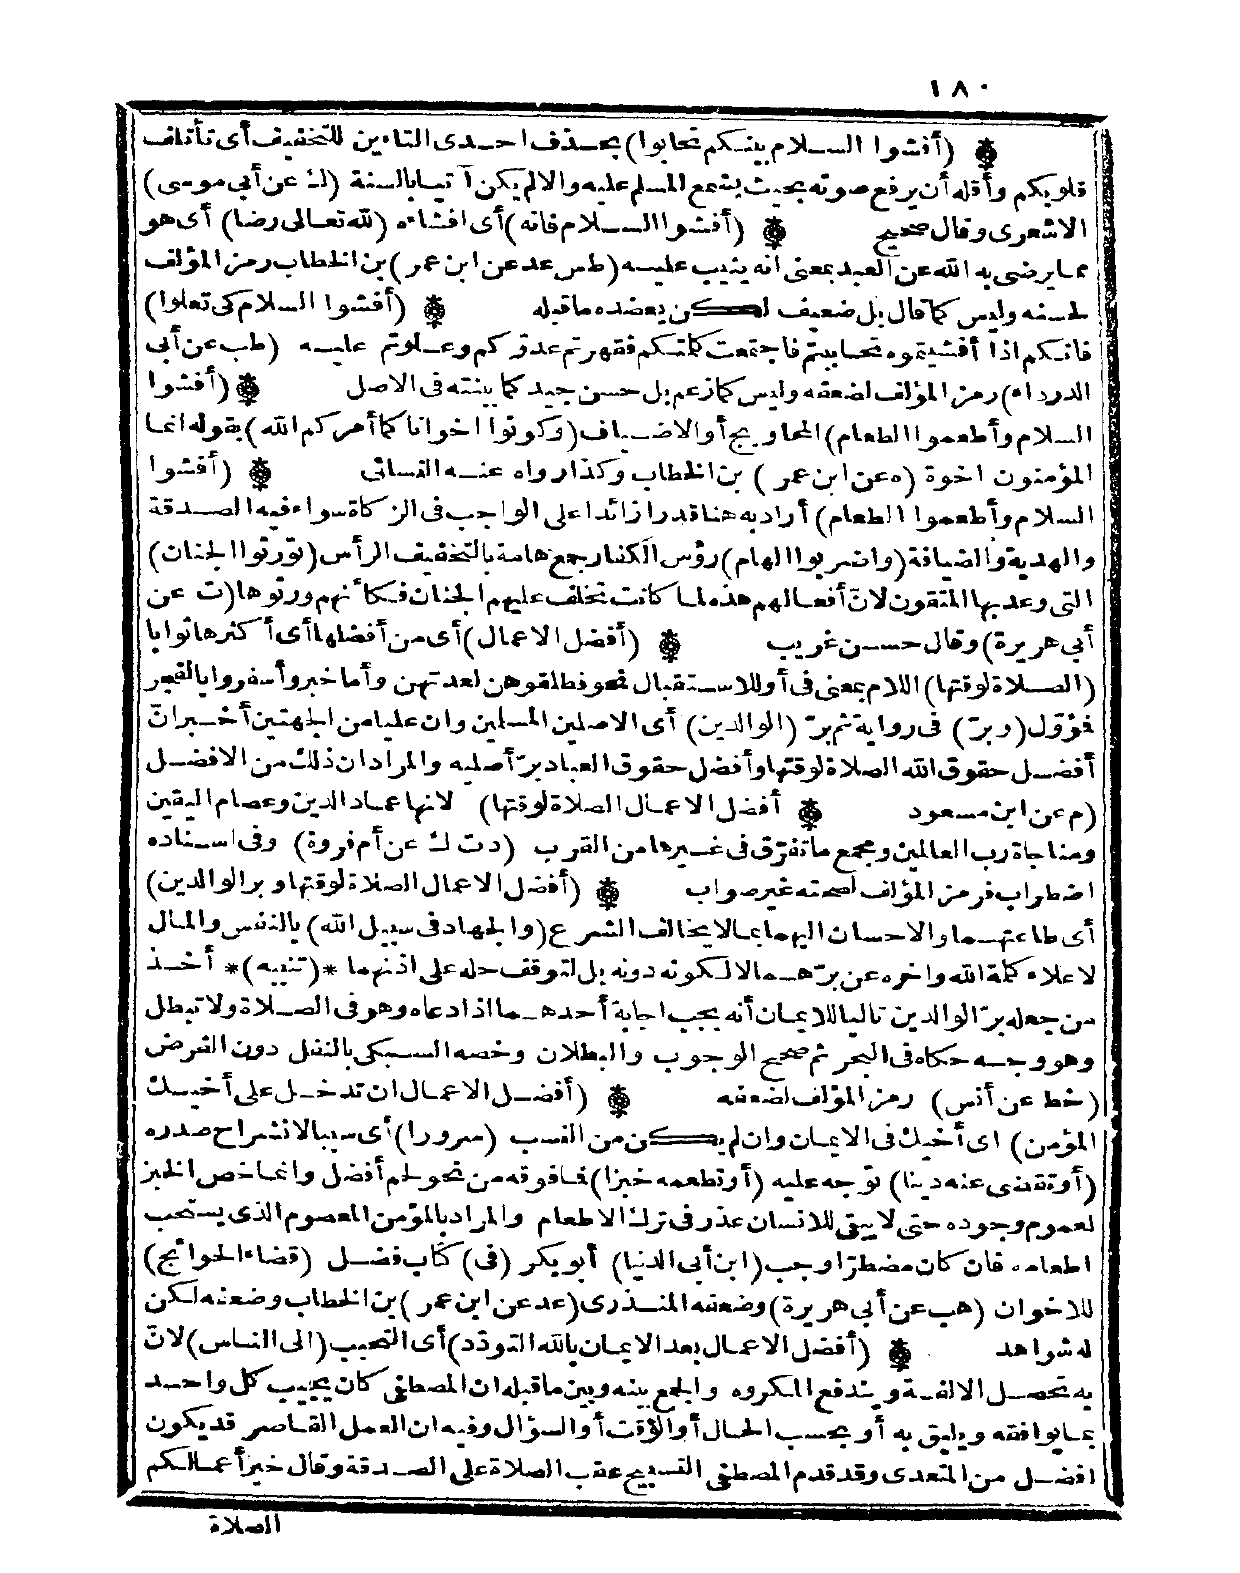 ١٨٠
(أفشوا السلام بينكم تحابوا) بحذف احدى التاءين للتخفيف أى تأتلف
قلوبكم وأقله أن يرفع صوته بحيث يسمع المسلم عليه والا لم يكن آتيا بالسنة (ك عن أبي موسى)
الاشعرى وقال صحيح (أفشوا السلام فانه) أى افشاءه (لله تعالى رضا) أى هو
مما يرضى به الله عن العبد بمعنى أنه يثيب عليه (طس عد عن ابن عمر) بن الخطاب رمز المؤلف
لحسنه وليس كما قال بل ضعيف لكن يعضده ما قبله (أفشوا السلام كى تعلوا)
فانكم اذا أفشيتموه تحاببتم فاجتمعت كلمتكم فقهرتم عدوّكم وعلوتم عليه (طب عن أبي
الدرداء) رمز المؤلف لضعفه وليس كما زعم بل حسن جيد كما بينته فى الاصل (أفشوا
السلام وأطعموا الطعام) المحاويج أو الاضياف (وكونوا اخوانا كما أمركم الله) بقوله انما
المؤمنون اخوة (ه عن ابن عمر) بن الخطاب وكذا رواه عنه النسائى (أفشوا
السلام وأطعموا الطعام) أراد به هنا قدرا زائدا على الواجب فى الزكاة سواء فيه الصدقة
والهدية والضيافة (واضربوا الهام) رؤس الكفار جمع هامة بالتخفيف الرأس (تورثوا الجنان)
التى وعد بها المتقون لانّ أفعالهم هذه لما كانت تخلف عليهم الجنان فكأنهم ورثوها (ت عن
أبي هريرة) وقال حسن غريب (أفضل الاعمال) أى من أفضلها أى أكثرها ثوابا
(الصلاة لوقتها) اللام بمعنى فى أو للاستقبال نحو فطلقوهن لعدتهن وأما خبر وأسفروا بالفجر
فمؤوّل (وبرّ) فى رواية ثم برّ (الوالدين) أى الاصلين المسلمين وان عليا من الجهتين أخبر انّ
أفضل حقوق الله الصلاة لوقتها وأفضل حقوق العباد برّ أصليه والمراد ان ذلك من الافضل
(م عن ابن مسعود أفضل الاعمال الصلاة لوقتها) لانها عماد الدين وعصام اليقين
ومناجاة رب العالمين ومجمع ما تفرّق فى غيرها من القرب (د ت ك عن أم فروة) وفى اسناده
اضطراب فرمز المؤلف لصحته غير صواب (أفضل الاعمال الصلاة لوقتها وبر الوالدين)
أى طاعتهما والاحسان اليهما بما لا يخالف الشرع (والجهاد فى سبيل الله) بالنفس والمال
لاعلاء كلمة الله واخره عن برّهما لا لكونه دونه بل لتوقف حله على اذنهما *(تنبيه)* أخذ
من جعله برّ الوالدين تاليا للايمان أنه يجب اجابة أحدهما اذا دعاه وهو فى الصلاة ولا تبطل
وهو وجه حكاه فى البحر ثم صحح الوجوب والبطلان وخصه السبكى بالنفل دون الفرض
(خط عن أنس) رمز المؤلف لضعفه (أفضل الاعمال ان تدخل على أخيك
المؤمن) اى أخيك فى الايمان وان لم يكن من النسب (سرورا) أى سببا لانشراح صدره
(أو تقضى عنه دينا) توّجه عليه (أو تطعمه خبزا) فما فوقه من نحو لحم أفضل وانما خص الخبز
لعموم وجوده حتى لا يبقى للانسان عذر فى ترك الاطعام والمراد بالمؤمن المعصوم الذى يستحب
اطعامه فان كان مضطرّا وجب (ابن أبى الدنيا) أبو بكر (فى) كتاب فضل (قضاء الحوائج)
للاخوان (هب عن أبي هريرة) وضعفه المنذرى (عد عن ابن عمر) بن الخطاب وضعفه لكن
له شواهد (أفضل الاعمال بعد الايمان بالله التودّد) أى التحبب (الى الناس) لانّ
به تحصل الالفة ويندفع المكروه والجمع بينه وبين ما قبله ان المصطفى كان يجيب كل واحد
بما يوافقه ويليق به أو بحسب الحال أو الوقت أو السؤال وفيه ان العمل القاصر قد يكون
افضل من المتعدى وقد قدم المصطفى التسبيح عقب الصلاة على الصدقة وقال خير أعمالكم
الصلاة